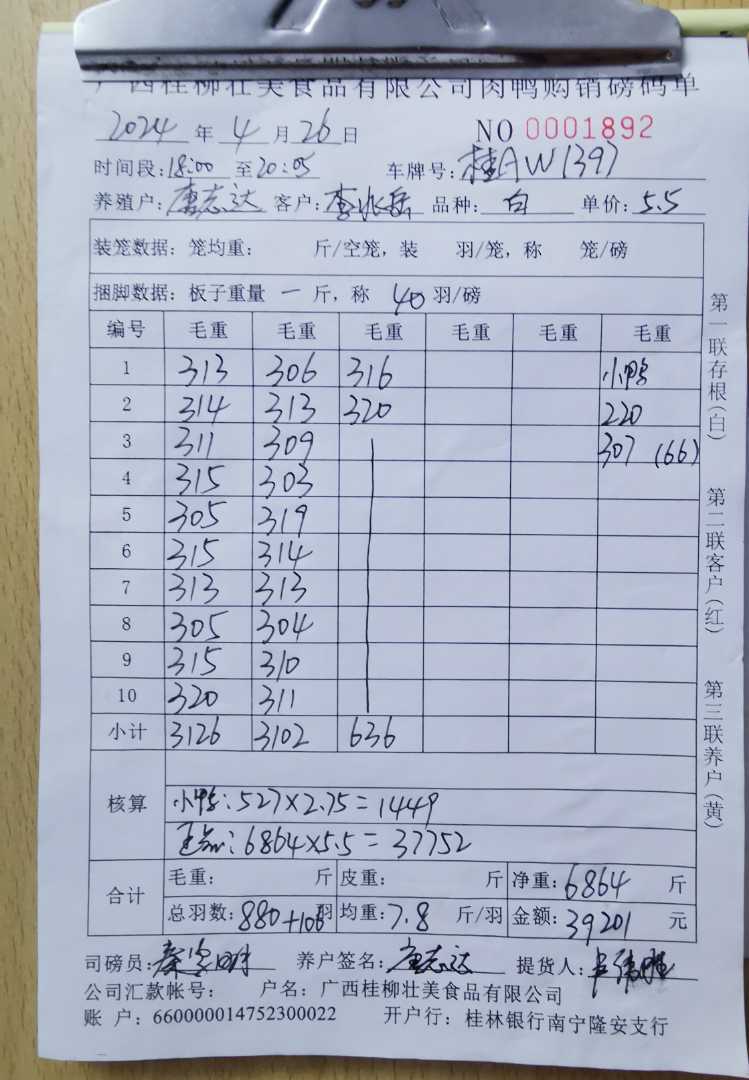 广西桂柳壮美食品有限公司肉鸭购销磅码单
2024 年 4 月 26 日 NO 0001892
时间段: 18:00 至 20:05 车牌号: 桂AW1397
养殖户: 唐志达 客户: 李兆岳 品种: 白 单价: 5.5
装笼数据: 笼均重: 斤/空笼, 装 羽/笼, 称 笼/磅
捆脚数据: 板子重量 一 斤, 称 40 羽/磅
编号 毛重 毛重 毛重 毛重 毛重 毛重
1 313 306 316 小鸭
2 314 313 320 220
3 311 309 307 (66)
4 315 303
5 305 319
6 315 314
7 313 313
8 305 304
9 315 310
10 320 311
小计 3126 3102 636
核算
小鸭: 527×2.75=1449
6864×5.5=37752
合计
毛重: 斤 皮重: 斤 净重: 6864 斤
总羽数: 880+106 羽 均重: 7.8 斤/羽 金额: 39201 元
司磅员: 养户签名: 唐志达 提货人:
公司汇款帐号: 户名: 广西桂柳壮美食品有限公司
账 户: 660000014752300022 开户行: 桂林银行南宁隆安支行
第一联存根(白)
第二联客户(红)
第三联养户(黄)